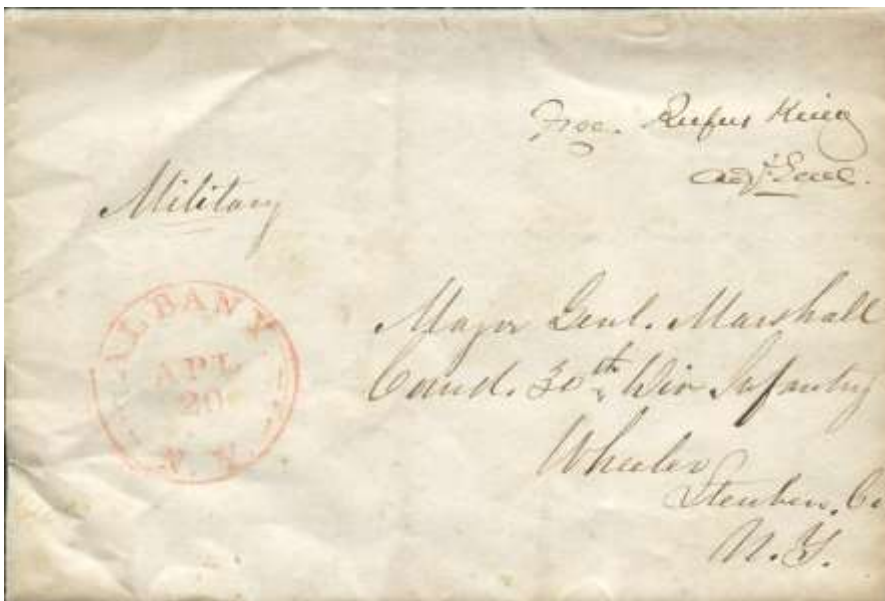 Free. Rufus King
Adjt. Genl.
Military
ALBANY
APL
20
N.Y.
Major Genl. Marshall
Comd. 30th Div Infantry
Wheeler
Steuben. Co
N.Y.